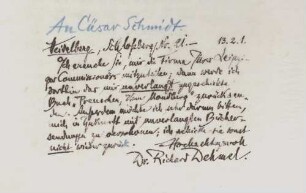 An Cäsar Schmidt
Heidelberg, Schloßberg, Nr. 21. 13.2.1.
Ich ersuche Sie, mir die Firma Ihres Leipziger
Commissionärs mitzuteilen, dann werde ich
dorthin das mir unverlangt zugeschickte
Buch zurücksenden.
Außerdem möchte ich sehr darum bitten,
mich in Zukunft mit unverlangten Bücher-
sendungen zu verschonen; ich schicke sie sonst
nicht wieder zurück.
Hochachtungsvoll
Dr. Richard Dehmel.